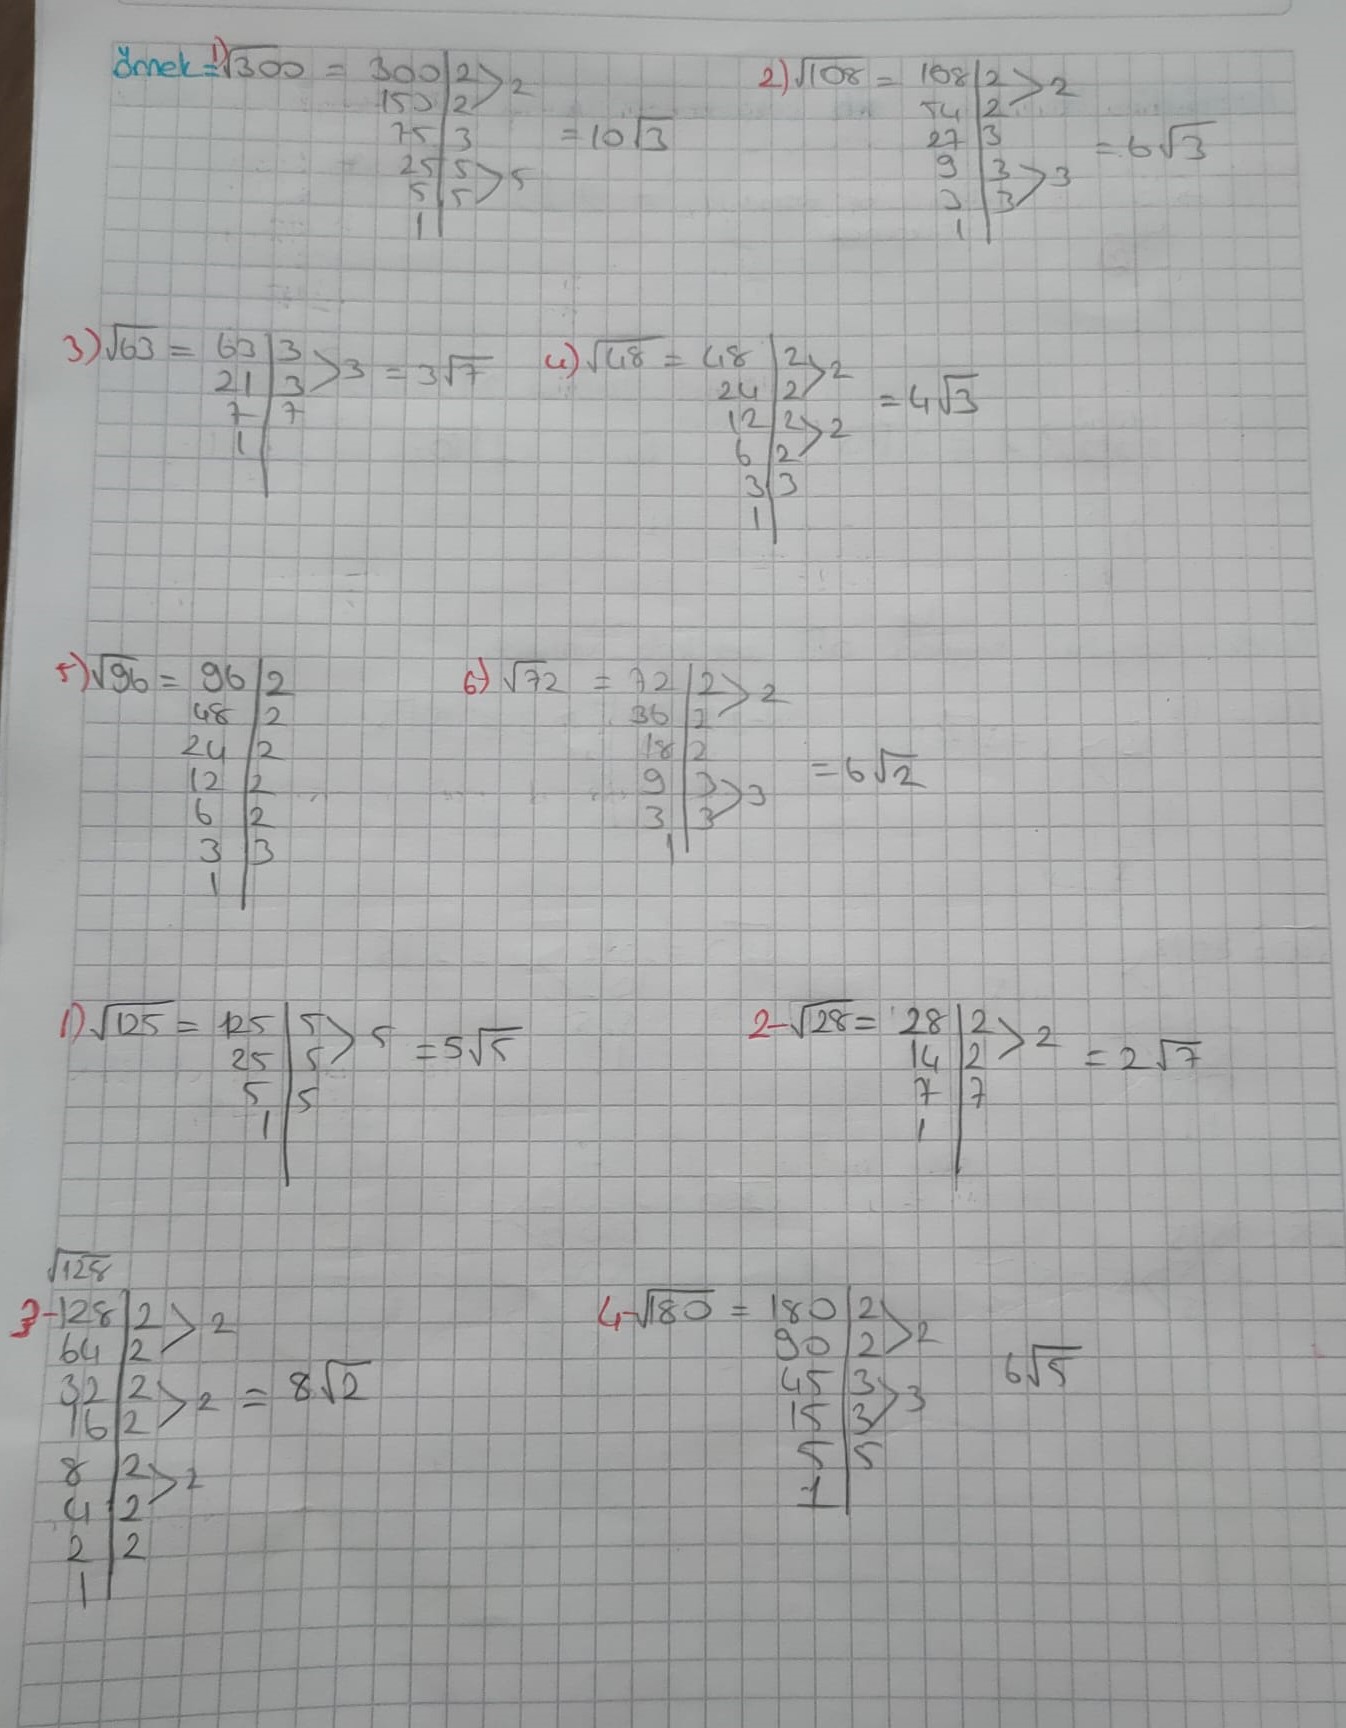 Örnek = 1) √300 = 300 | 2 > 2
150 | 2
75 | 3 = 10√3
25 | 5 > 5
5 | 5
1
2) √108 = 108 | 2 > 2
54 | 2
27 | 3 = 6√3
9 | 3 > 3
3 | 3
1
3) √63 = 63 | 3 > 3 = 3√7
21 | 3
7 | 7
1
4) √48 = 48 | 2 > 2
24 | 2 = 4√3
12 | 2 > 2
6 | 2
3 | 3
1
5) √96 = 96 | 2
48 | 2
24 | 2
12 | 2
6 | 2
3 | 3
1
6) √72 = 72 | 2 > 2
36 | 2
18 | 2 = 6√2
9 | 3 > 3
3 | 3
1
1) √125 = 125 | 5 > 5 = 5√5
25 | 5
5 | 5
1
2- √28 = 28 | 2 > 2 = 2√7
14 | 2
7 | 7
1
√128
3- 128 | 2 > 2
64 | 2
32 | 2 > 2 = 8√2
16 | 2
8 | 2 > 2
4 | 2
2 | 2
1
4- √180 = 180 | 2 > 2
90 | 2
45 | 3 > 3 6√5
15 | 3
5 | 5
1